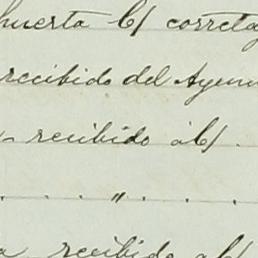 huerta b/ correta
recibido del Ayun
recibido á b/ .
. . . " . . .
a recibido a b/